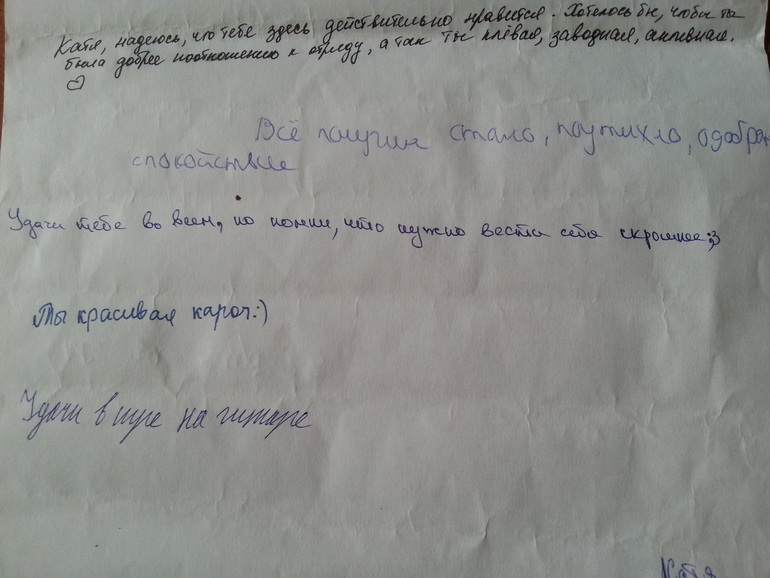 Катя, надеюсь, что тебе здесь действительно нравится. Хотелось бы, чтобы ты
была добрее поотношению к отряду, а так ты клёвая, заводная, активная.
Всё получим стало, поутихло, одобрен
спокойствие
Удачи тебе во всем, но помни, что нужно вести себя скромнее ;3
Ты красивая кароч:)
Удачи в игре на гитаре
Катя